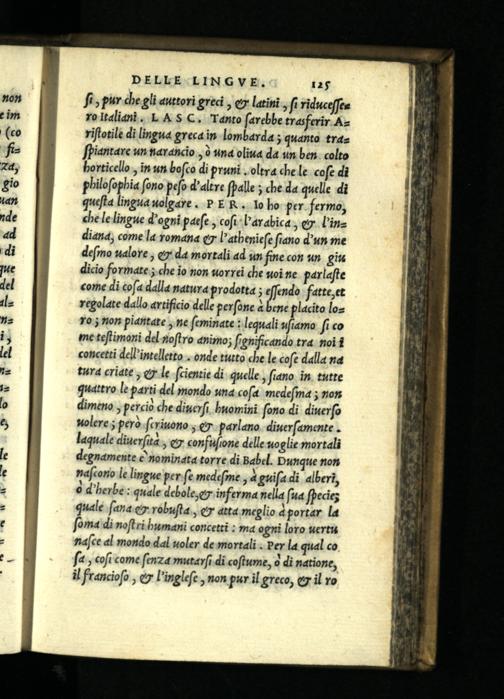 DELLE LINGVE. 125
ſi, pur che gli auttori greci, & latini, ſi riduceſſe=
ro Italiani. LASC. Tanto ſarebbe traſferir A=
riſtotile di lingua greca in lombarda; quanto tra=
ſpiantare un narancio, ò una oliua da un ben colto
horticello, in un boſco di pruni. oltra che le coſe di
philoſophia ſono peſo d'altre ſpalle; che da quelle di
queſta lingua uolgare. PER. Io ho per fermo,
che le lingue d'ogni paeſe, coſi l'arabica, & l'in=
diana, come la romana & l'athenieſe ſiano d'un me
deſmo ualore, & da mortali ad un fine con un giu
dicio formate; che io non uorrei che uoi ne parlaſte
come di coſa dalla natura prodotta; eſſendo fatte, et
regolate dallo artificio delle perſone à bene placito lo=
ro; non piantate, ne ſeminate: lequali uſiamo ſi co
me teſtimoni del noſtro animo; ſignificando tra noi i
concetti dell'intelletto. onde tutto che le coſe dalla na
tura criate, & le ſcientie di quelle, ſiano in tutte
quattro le parti del mondo una coſa medeſma; non
dimeno, perciò che diuerſi huomini ſono di diuerſo
uolere; però ſcriuono, & parlano diuerſamente.
laquale diuerſità, & confuſione delle uoglie mortali
degnamente è nominata torre di Babel. Dunque non
naſcono le lingue per ſe medeſme, à guiſa di alberi,
ò d'herbe: quale debole, & inferma nella ſua ſpecie;
quale ſana & robuſta, & atta meglio à portar la
ſoma di noſtri humani concetti: ma ogni loro uertu
naſce al mondo dal uoler de mortali. Per la qual co
ſa, coſi come ſenza mutarſi di coſtume, ò di natione,
il francioſo, & l'ingleſe, non pur il greco, & il ro
non
e im
(co
fi=
za,
gio
uan
nde
ad
di
que
del
al=
n=
i,
del
n=
i=
lo
e,
le
le